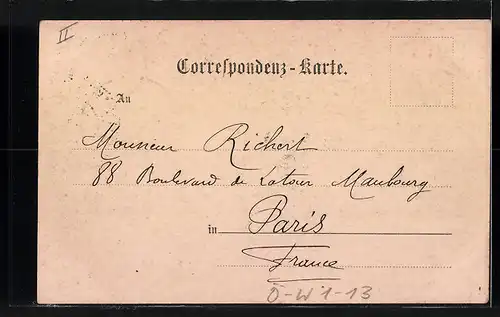 II
Correspondenz-Karte.
An
Monsieur Richert
88 Boulevard de Latour Maubourg
in Paris
France
Ö-W 1-13